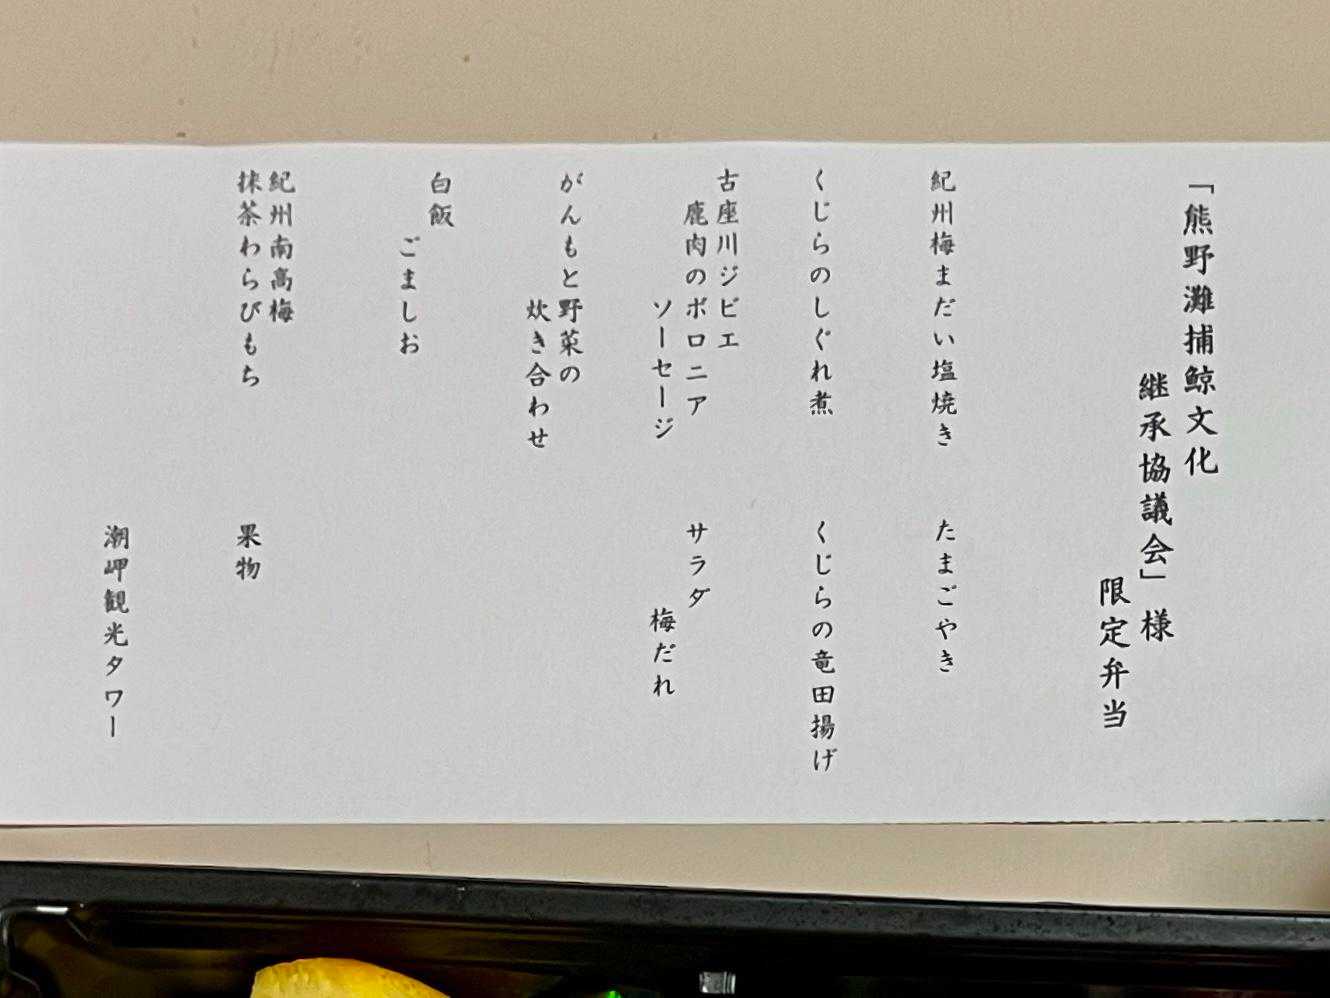 「熊野灘捕鯨文化
継承協議会」様
限定弁当
紀州梅まだい塩焼き
たまごやき
くじらのしぐれ煮
くじらの竜田揚げ
古座川ジビエ
鹿肉のボロニア
ソーセージ
サラダ
梅だれ
がんもと野菜の
炊き合わせ
白飯
ごましお
紀州南高梅
抹茶わらびもち
果物
潮岬観光タワー